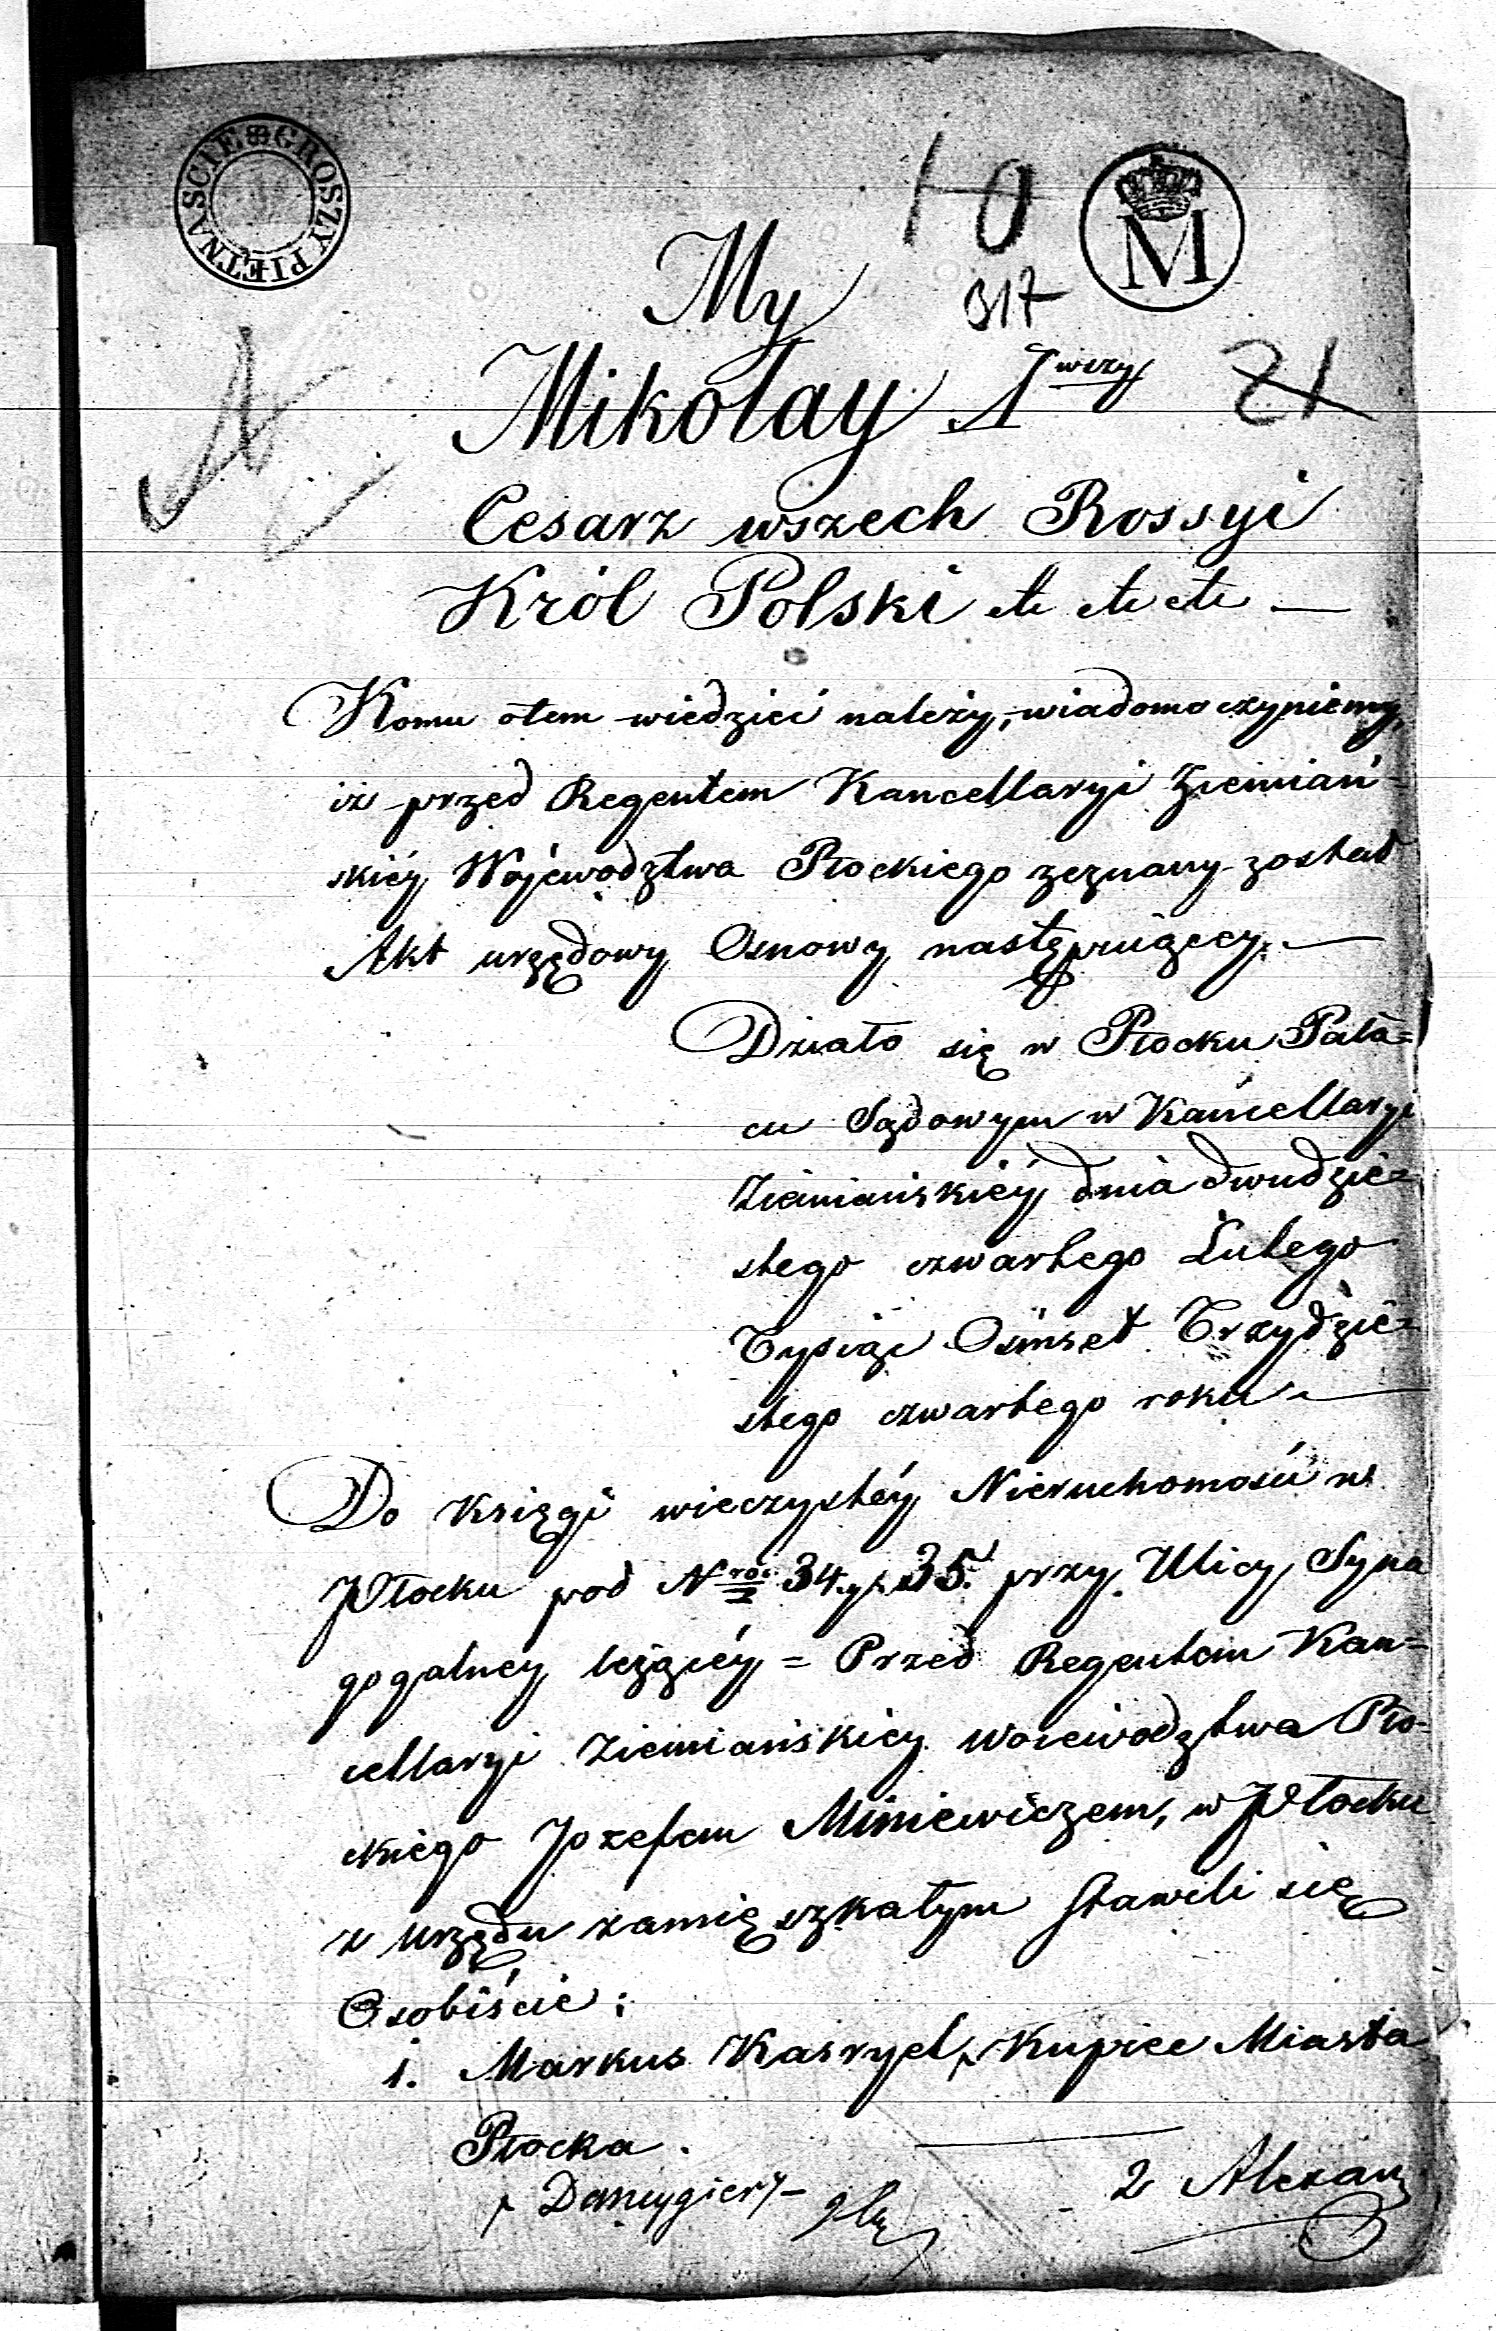 GROSZY PIĘTNAŚCIE
M
10
317
21
My
Mikołay 1wszy
Cesarz wszech Rossyi
Król Polski etc etc etc —
Komu otem wiedzieć należy, wiadomo czyniemy,
iż przed Regentem Kancellaryi Ziemiań-
skiéy Województwa Płockiego zeznany został
Akt urzędowy Osnowy następuiącey. —
Działo się w Płocku Pała=
cu Sądowym w Kancellaryi
Ziemiańskiéy dnia dwudzie=
stego czwartego Lutego
Tysiąc Ośmset Trzydzie=
stego czwartego roku —
Do Księgi wieczystéy Nieruchomości w
Płocku pod Nroi 34. y 35. przy Ulicy Syna
gogalney leżącéy = Przed Regentem Kan=
cellaryi Ziemiańskiey Woiewodztwa Pło-
ckiego Jozefem Miniewiczem, w Płocku
z urzędu zamięszkałym stawili się
Osobiście:
1. Markus Kasryel, Kupiec Miasta
Płocka. —
Dancygier
2 Alexan